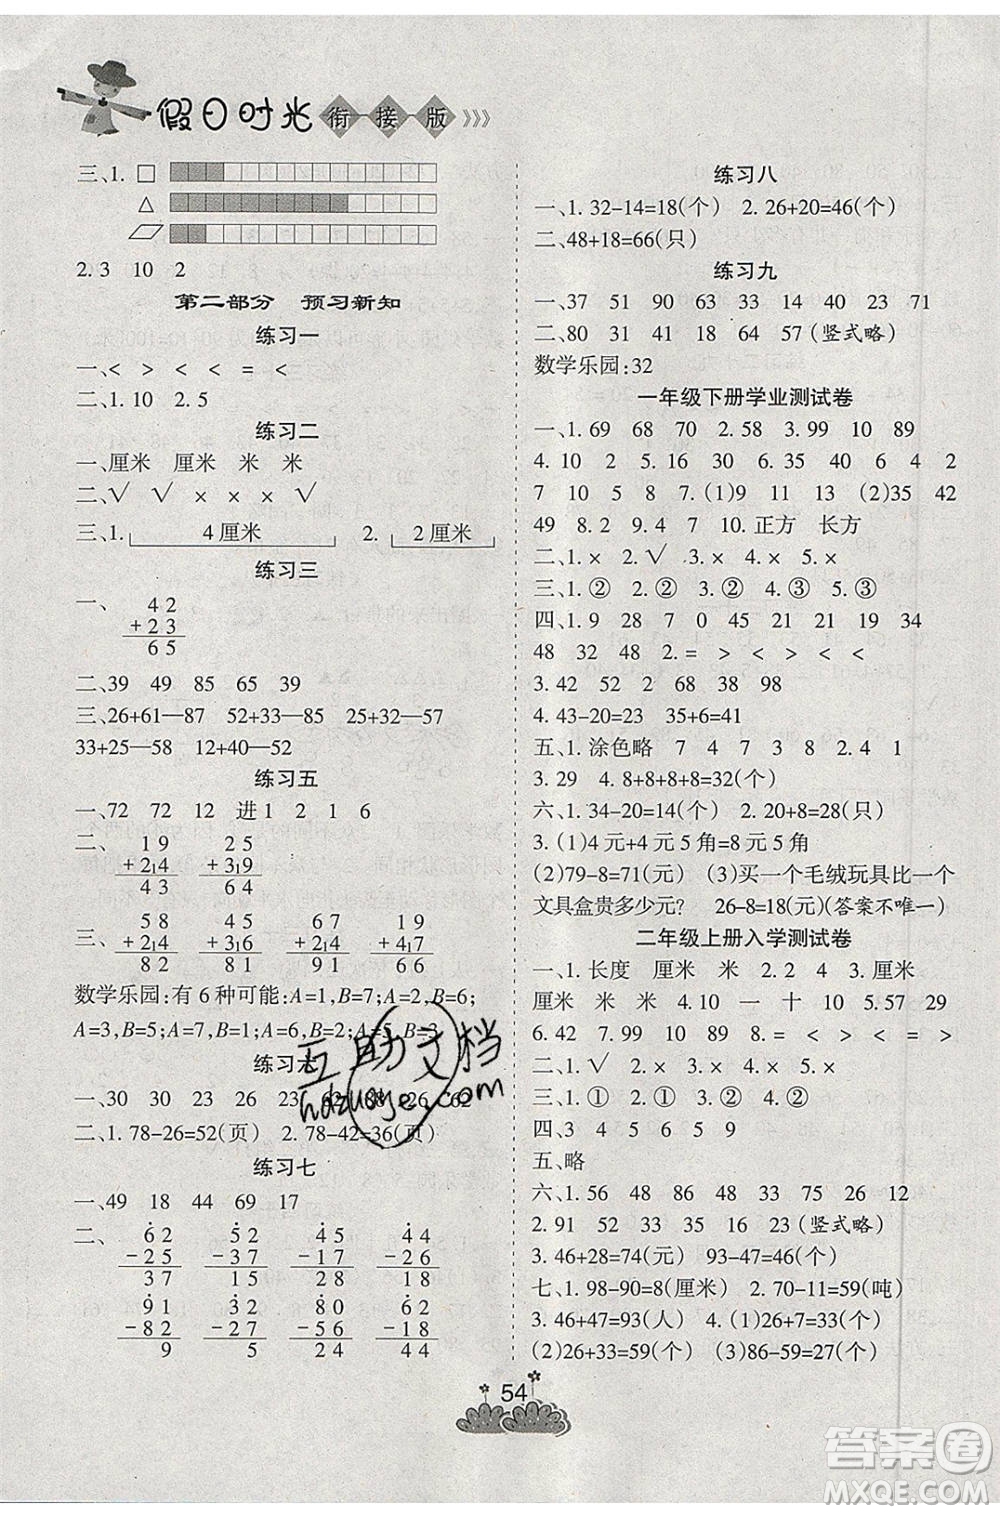 假日时光 衔接版
三、1. □
△
▱
2. 3 10 2
第二部分 预习新知
练习一
一、< > > < < = <
二、1. 10 2. 5
练习二
一、厘米 厘米 米 米
二、√ √ × × × √
三、1. 4厘米 2. 2厘米
练习三
一、 42
+23
65
二、39 49 85 65 39
三、26+61—87 52+33—85 25+32—57
33+25—58 12+40—52
练习五
一、72 72 12 进1 2 1 6
二、 19 25
+214 +319
43 64
三、 58 45 67 19
+214 +318 +213 +416
82 83 90 65
数学乐园:有6种可能:A=1,B=7;A=2,B=6;
A=3,B=5;A=7,B=1;A=6,B=2;A=5,B=3
练习六
一、30 30 23 26 23 62 88 26 62
二、1. 78-26=52(页) 2. 78-42=36(页)
练习七
一、49 18 44 69 17
二、 62 52 45 44
-25 -37 -17 -26
37 15 28 18
91 32 80 62
-82 -27 -56 -44
9 5 24 18
练习八
一、1. 32-14=18(个) 2. 26+20=46(个)
二、48+18=66(只)
练习九
一、37 51 90 63 33 14 40 23 71
二、80 31 41 18 64 57(竖式略)
数学乐园:32
一年级下册学业测试卷
一、1. 69 68 70 2. 58 3. 99 10 89
4. 10 2 5. 16 10 6. 6 4 2
7 10 5 8 7. (1)9 11 (2)35 42
49 8. 2 9. 4 7 10. 正方 长方
二、1. × 2. √ 3. × 4. × 5. ×
三、1. ② 2. ③ 3. ② 4. ③ 5. ③
四、1. 9 28 7 0 45 21 19 34
48 48 32 2. > < = > < <
3. 42 50 58 32 38 98
4. 43-20=23 35+6=41
五、1. 涂色略 7 4 7 3 8 2. 4 1
3. 29 4. 8+8+8+8=32(个)
六、1. 34-20=14(只) 2. 20+8=28(只)
3. (1)4元+4元5角=8元5角
(2)79-8=71(元) (3)买一个毛绒玩具比一个
文具盒贵多少元? 26-8=18(元)(答案不唯一)
二年级上册入学测试卷
一、1. 长度 厘米 米 2. 2 4 3. 厘米
厘米 米 米 4. 10 一 十 10 5. 57 29
6. 42 7. 99 10 8. = < > < > <
二、1. √ 2. × 3. × 4. × 5. ×
三、1. ① 2. ① 3. ② 4. ① 5. ①
四、3 4 5 6 5 9
五、略
六、1. 56 48 16 95 26 12
2. 91 32 35 16 23(竖式略)
3. 46+28=74(元) 93-47=46(个)
七、1. 98-90=8(厘米) 2. 70-11=59(吨)
3. 46+47=93(人) 4. (1)26+7=33(个)
(2)26+33=59(个) (3)60-33=27(个)
54
互助文档
hdzuoye.com
答案圈
MXQE.COM